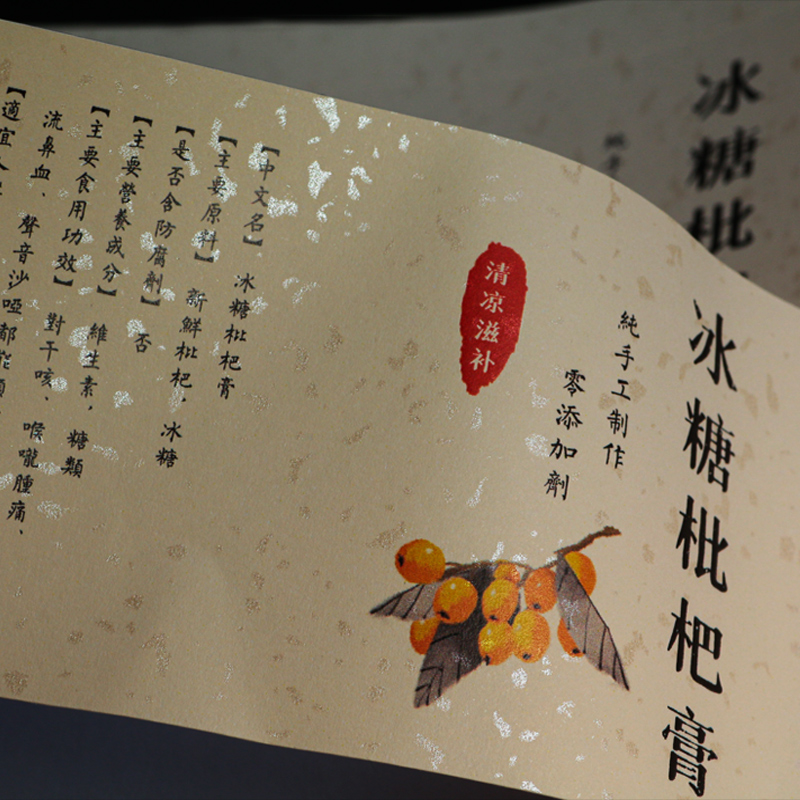 冰糖枇杷膏
純手工制作
零添加劑
清凉滋补
【中文名】 冰糖枇杷膏
【主要原料】 新鮮枇杷，冰糖
【是否含防腐劑】 否
【主要營養成分】 維生素，糖類
【主要食用功效】 對干咳、喉嚨腫痛、
流鼻血、聲音沙啞都能
【適宜人
冰糖枇
純手